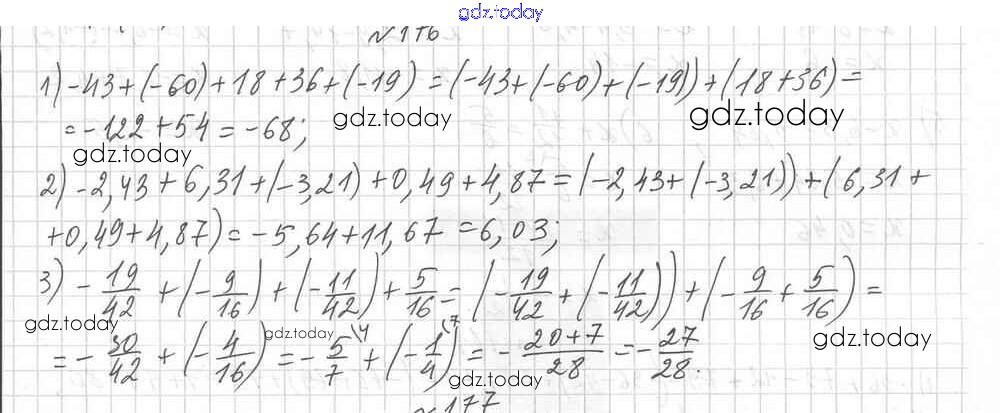 gdz.today
№176
1) -43+(-60)+18+36+(-19)=(-43+(-60)+(-19))+(18+36)=
gdz.today gdz.today
=-122+54=-68;
gdz.today
2) -2,43+6,31+(-3,21)+0,49+4,87=(-2,43+(-3,21))+(6,31+
+0,49+4,87)=-5,64+11,67=6,03;
3) -19/42+(-9/16)+(-11/42)+5/16=(-19/42+(-11/42))+(-9/16+5/16)=
gdz.today gdz.today gdz.today
=-30/42+(-4/16)=-5/7\4+(-1/4)\7=-(20+7)/28=-27/28.
gdz.today
№177